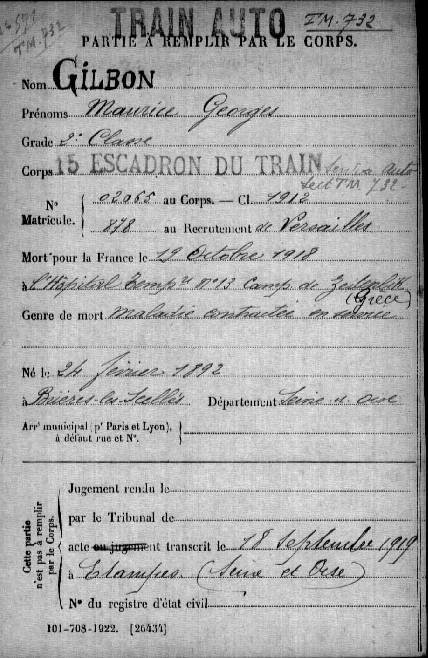 TRAIN AUTO TM.732
TM.732
PARTIE À REMPLIR PAR LE CORPS.
Nom GILBON
Prénoms Maurice Georges
Grade 2e Classe
Corps 15 ESCADRON DU TRAIN auto
Sect TM 732
N° Matricule. 02065 au Corps. — Cl. 1912
878 au Recrutement de Versailles
Mort pour la France le 12 Octobre 1918
à l'Hôpital Tempre n°13 Camp de Zeitenlik
(Grèce)
Genre de mort Maladie contractée en service
Né le 24 février 1892
à Brières les Scellés Département Seine et Oise
Arrt municipal (pr Paris et Lyon),
à défaut rue et N°.
Cette partie n'est pas à remplir par le Corps.
Jugement rendu le
par le Tribunal de
acte ou jugement transcrit le 18 septembre 1919
à Etampes (Seine et Oise)
N° du registre d'état civil
101-708-1922. [26434]